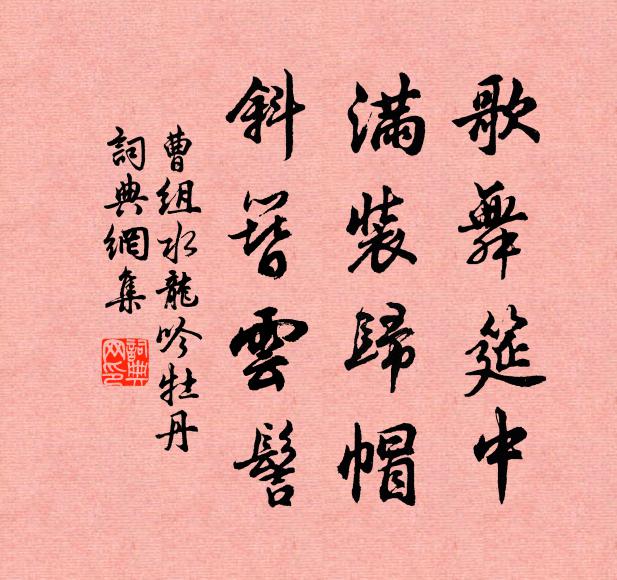 歌舞筵中
滿裝歸帽
斜簪雲髻
曹組水龍吟牡丹
詞典網集
詞典網印